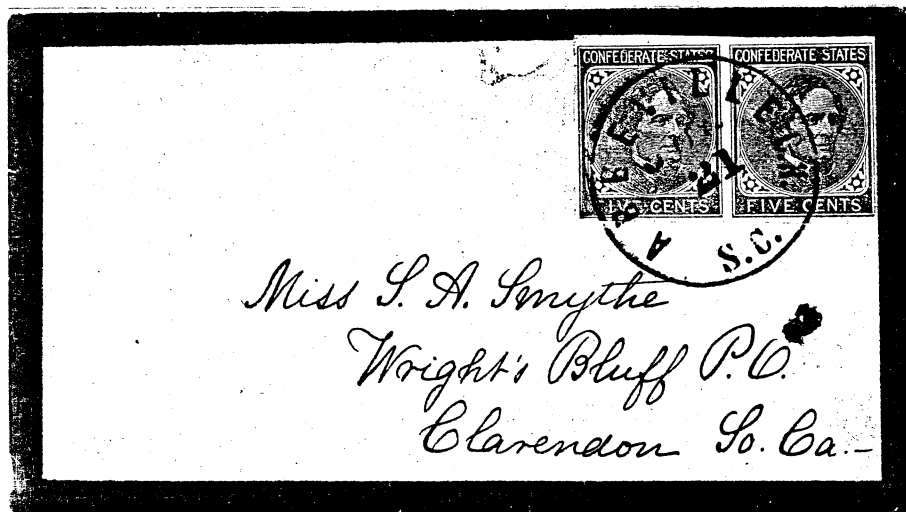 CONFEDERATE STATES CONFEDERATE STATES
FIVE CENTS FIVE CENTS
S.C.
Miss S. A. Smythe
Wright's Bluff P.O.
Clarendon So. Ca.-